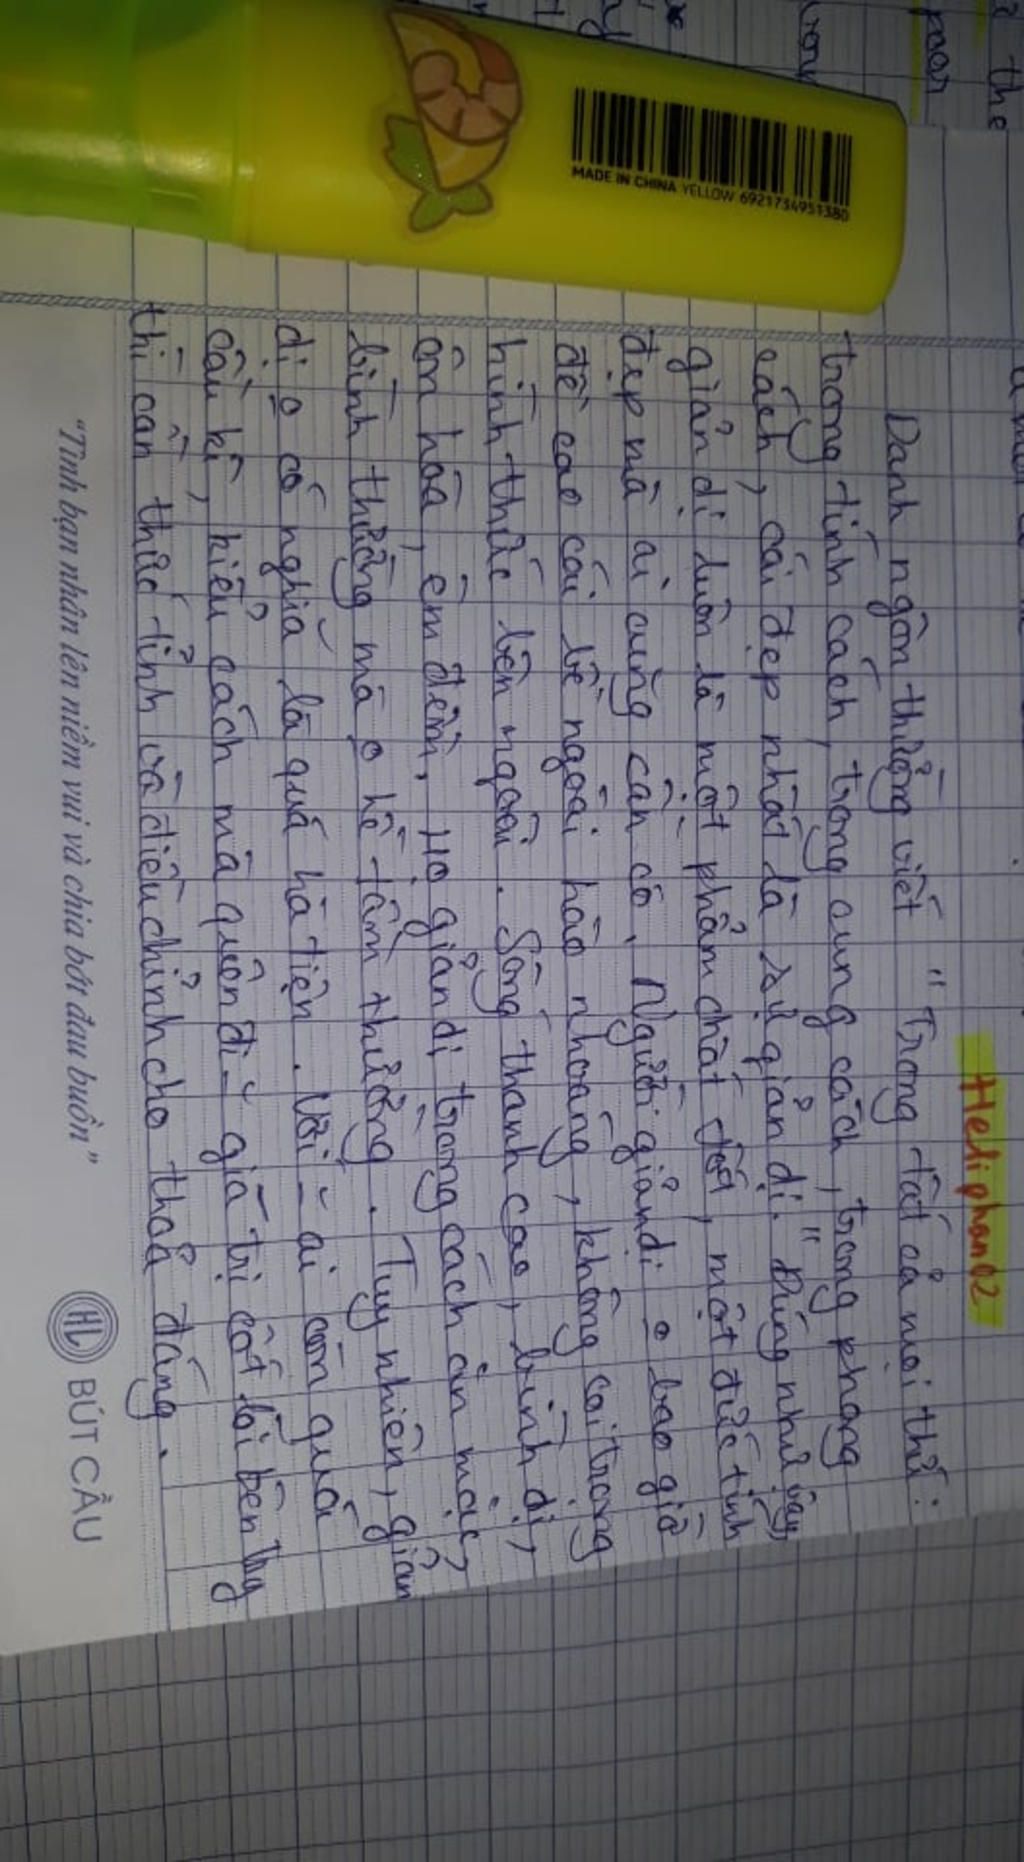 Heliphan02
Danh ngôn thường viết "Trong tất cả mọi thứ:
trong tính cách, trong cung cách, trong phong
cách, cái đẹp nhất là sự giản dị." Đúng như vậy,
giản dị luôn là một phẩm chất tốt, một đức tính
đẹp mà ai cũng cần có. Người giản dị o bao giờ
đề cao cái bề ngoài hào nhoáng, không coi trọng
hình thức bên ngoài. Sống thanh cao, bình dị,
ôn hòa, êm đềm. Họ giản dị trong cách ăn mặc,
bình thường mà o hề tầm thường. Tuy nhiên, giản
dị o có nghĩa là quá hà tiện. Với ~ ai còn quá
cầu kì, kiểu cách mà quên đi ~ giá trị cốt lõi bên
thì cần thức tỉnh và điều chỉnh cho thỏa đáng.
"Tình bạn nhân lên niềm vui và chia bớt đau buồn"
HL BÚT CẦU
MADE IN CHINA YELLOW 6921734951380
the
pear